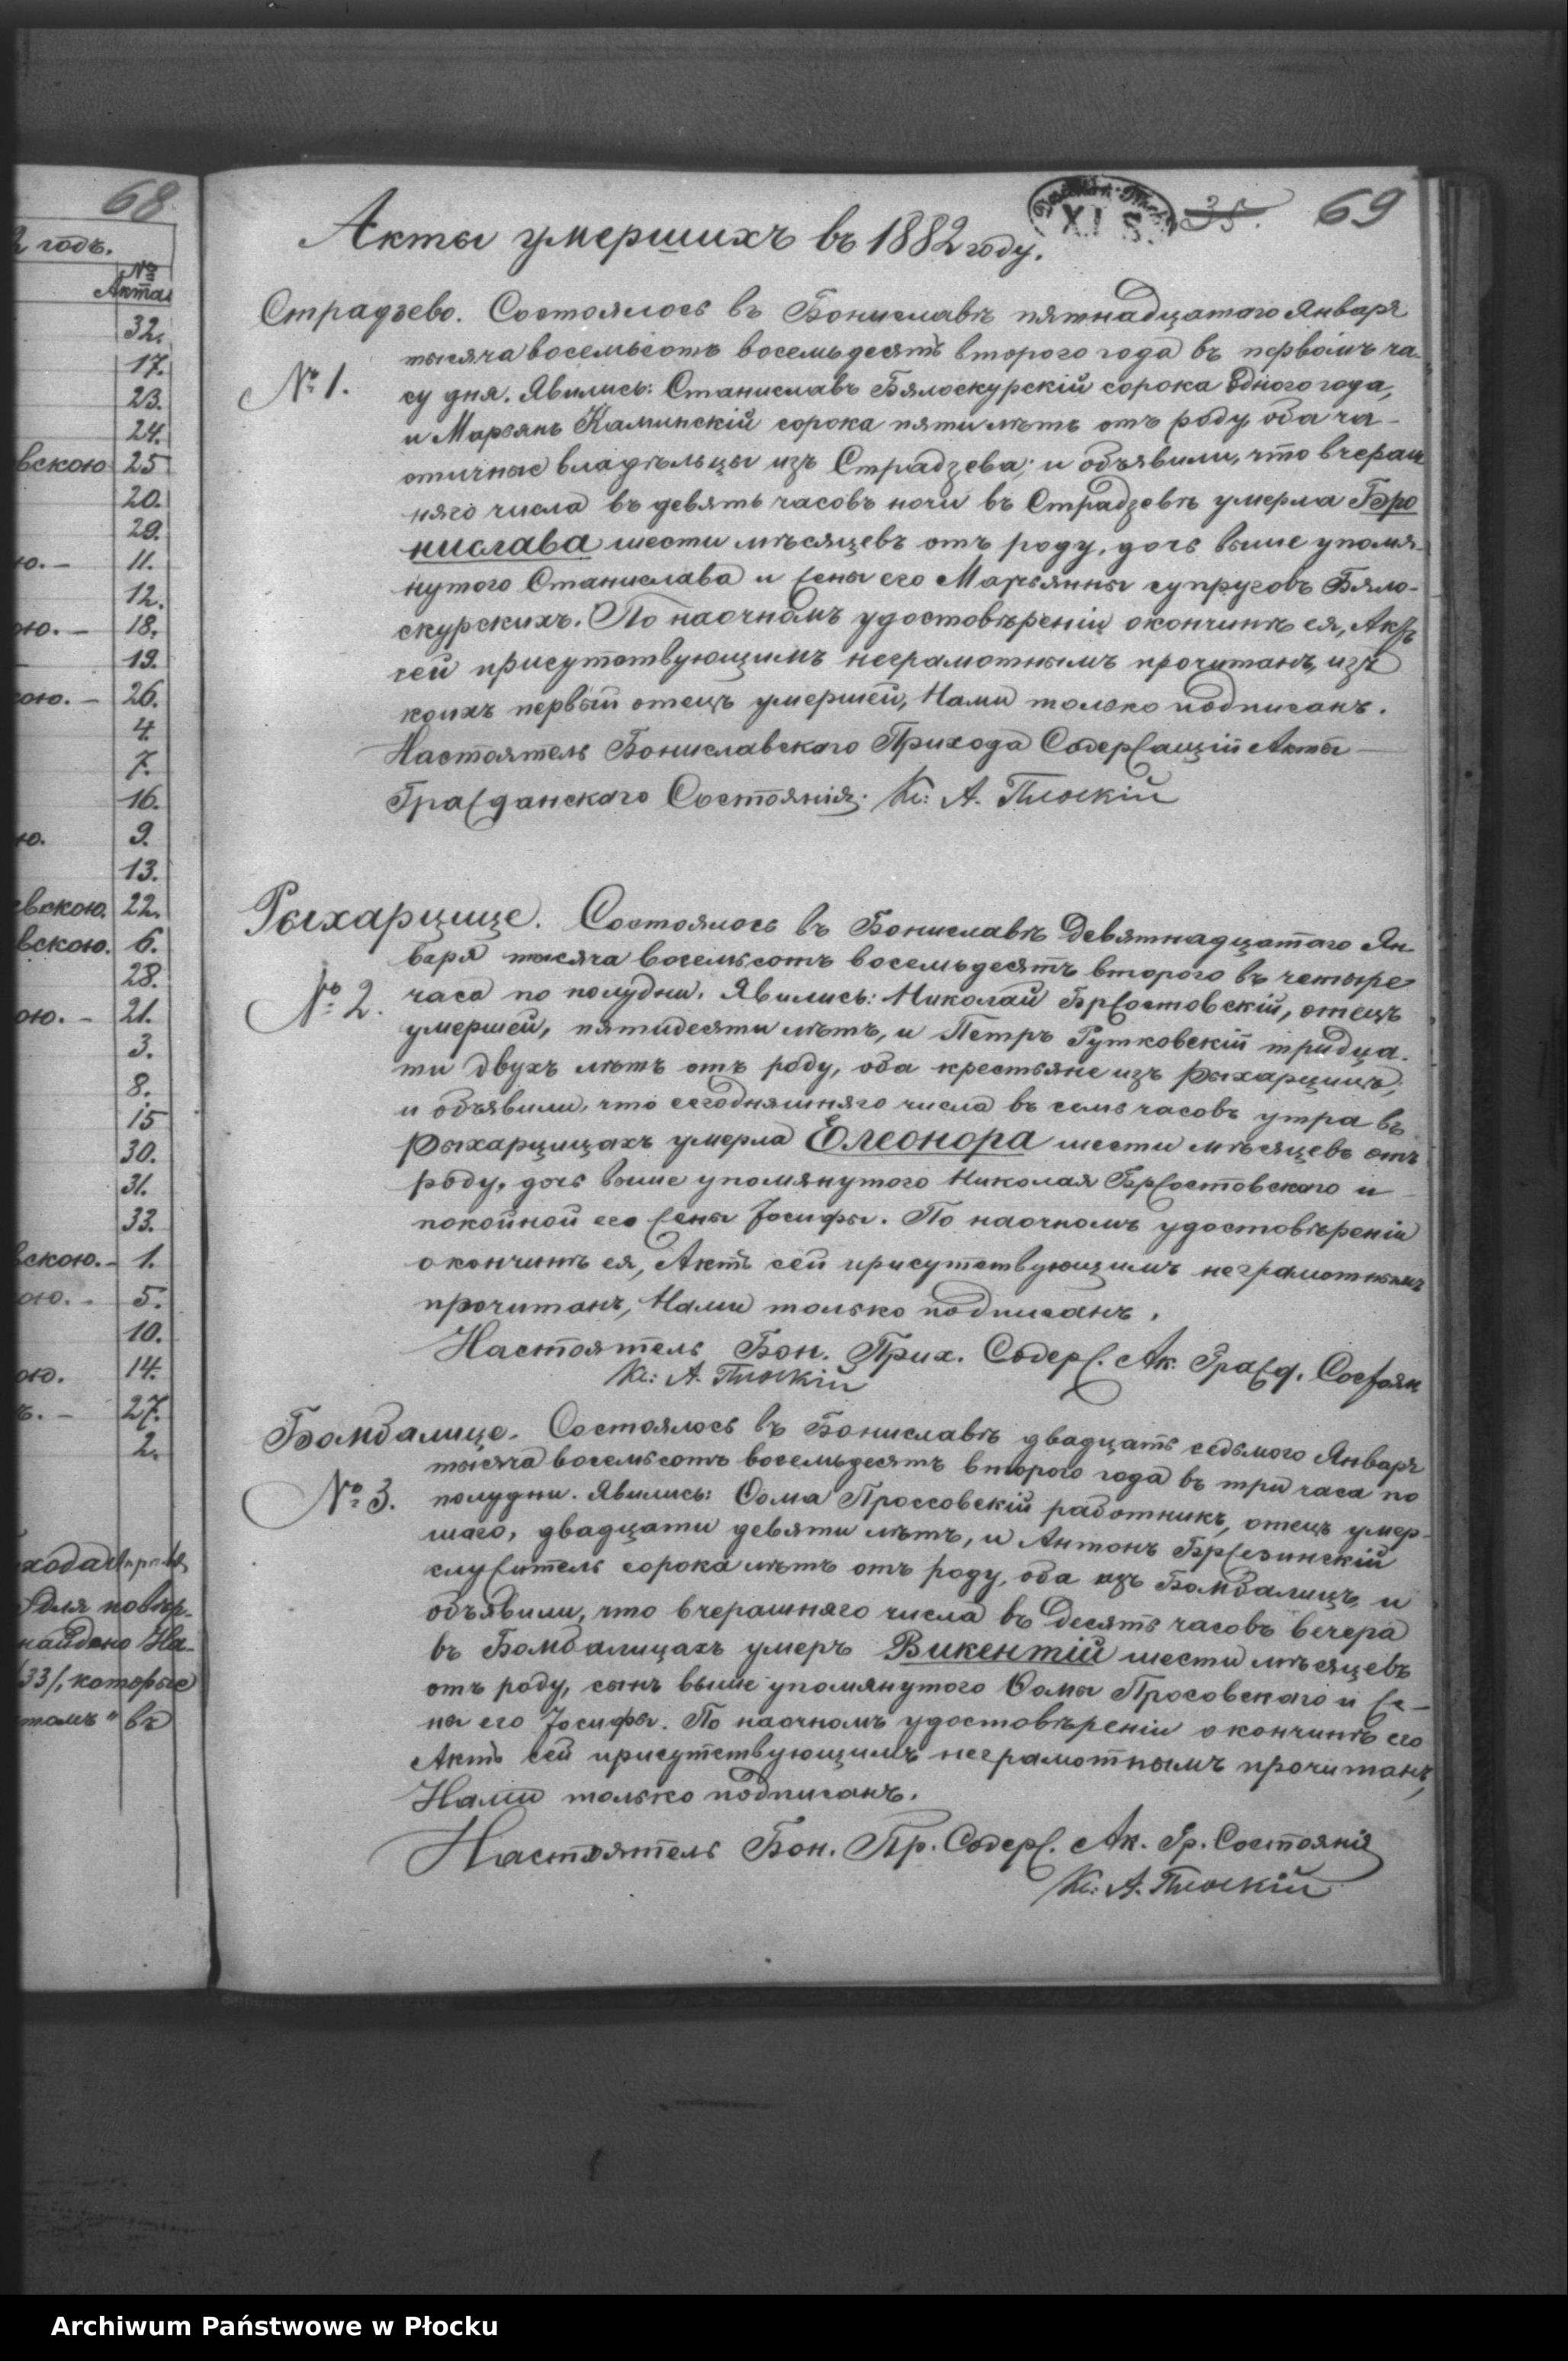 68
годъ.
№
Акта
32.
17.
23.
24.
вскою 25
20.
29.
ю. — 11.
12.
ою. — 18.
19.
кою. — 26.
4.
7.
16.
ю. 9.
13.
евскою. 22.
вскою. 6.
28.
ою. — 21.
3.
8.
15
30.
31.
33.
вскою. — 1.
ою. — 5.
10.
ою. 14.
ъ. — 27.
2.
для повѣр-
найдено На-
33/, которые
въ
XI S.
35. 69
Акты умершихъ въ 1882 году.
Страдзево. Состоялось въ Бониславѣ пятнадцатаго Января
тысяча восемьсотъ восемьдесятъ второго года въ первомъ ча-
№ 1. су дня. Явились: Станиславъ Бялоскурскій сорока одного года,
и Марьянъ Каминскій сорока пяти лѣтъ отъ роду, оба ча-
стичные владѣльцы изъ Страдзева; и объявили, что вчераш
няго числа въ девять часовъ ночи въ Страдзевѣ умерла Бро
нислава шести мѣсяцевъ отъ роду, дочь выше упомя-
нутого Станислава и жены его Марьянны супруговъ Бяло-
скурскихъ. По наочномъ удостовѣреніи окончинѣ ея, Актъ
сей присутствующимъ неграмотнымъ прочитанъ, изъ
коихъ первый отецъ умершей, Нами только подписанъ.
Настоятель Бониславскаго Прихода Содержащій Акты —
Гражданскаго Состоянія: Кс: А. Плоскій
Рыхарцице. Состоялось въ Бониславѣ девятнадцатаго Ян-
варя тысяча восемьсотъ восемьдесятъ второго въ четыре
№ 2. часа по полудни. Явились: Николай Бржостовскій, отецъ
умершей, пятидесяти лѣтъ, и Петръ Рутковскій тридца-
ти двухъ лѣтъ отъ роду, оба крестьяне изъ Рыхарцицъ;
и объявили, что сегодняшняго числа въ семь часовъ утра въ
Рыхарцицахъ умерла Елеонора шести мѣсяцевъ отъ
роду, дочь выше упомянутого Николая Бржостовскаго и
покойной его жены Іосифы. По наочномъ удостовѣреніи
окончинѣ ея, Актъ сей присутствующимъ неграмотнымъ
прочитанъ, Нами только подписанъ.
Настоятель Бон. Прих. Содерж. Ак. Гражд. Состоян
Кс: А. Плоскій
Бомбалице. Состоялось въ Бониславѣ двадцать седьмого Января
тысяча восемьсотъ восемьдесятъ второго года въ три часа по
№ 3. полудни. Явились: Ѳома Проссовскій работникъ, отецъ умер-
шаго, двадцати девяти лѣтъ, и Антонъ Бржезинскій
служитель сорока лѣтъ отъ роду, оба изъ Бомбалицъ, и
объявили, что вчерашняго числа въ десять часовъ вечера
въ Бомбалицахъ умеръ Викентій шести мѣсяцевъ
отъ роду, сынъ выше упомянутого Ѳомы Просовскаго и же-
ны его Іосифы. По наочномъ удостовѣреніи окончинѣ его
Актъ сей присутствующимъ неграмотнымъ прочитанъ,
Нами только подписанъ.
Настоятель Бон. Пр. Содерж. Ак. Гр. Состоянія
Кс: А. Плоскій
Archiwum Państwowe w Płocku